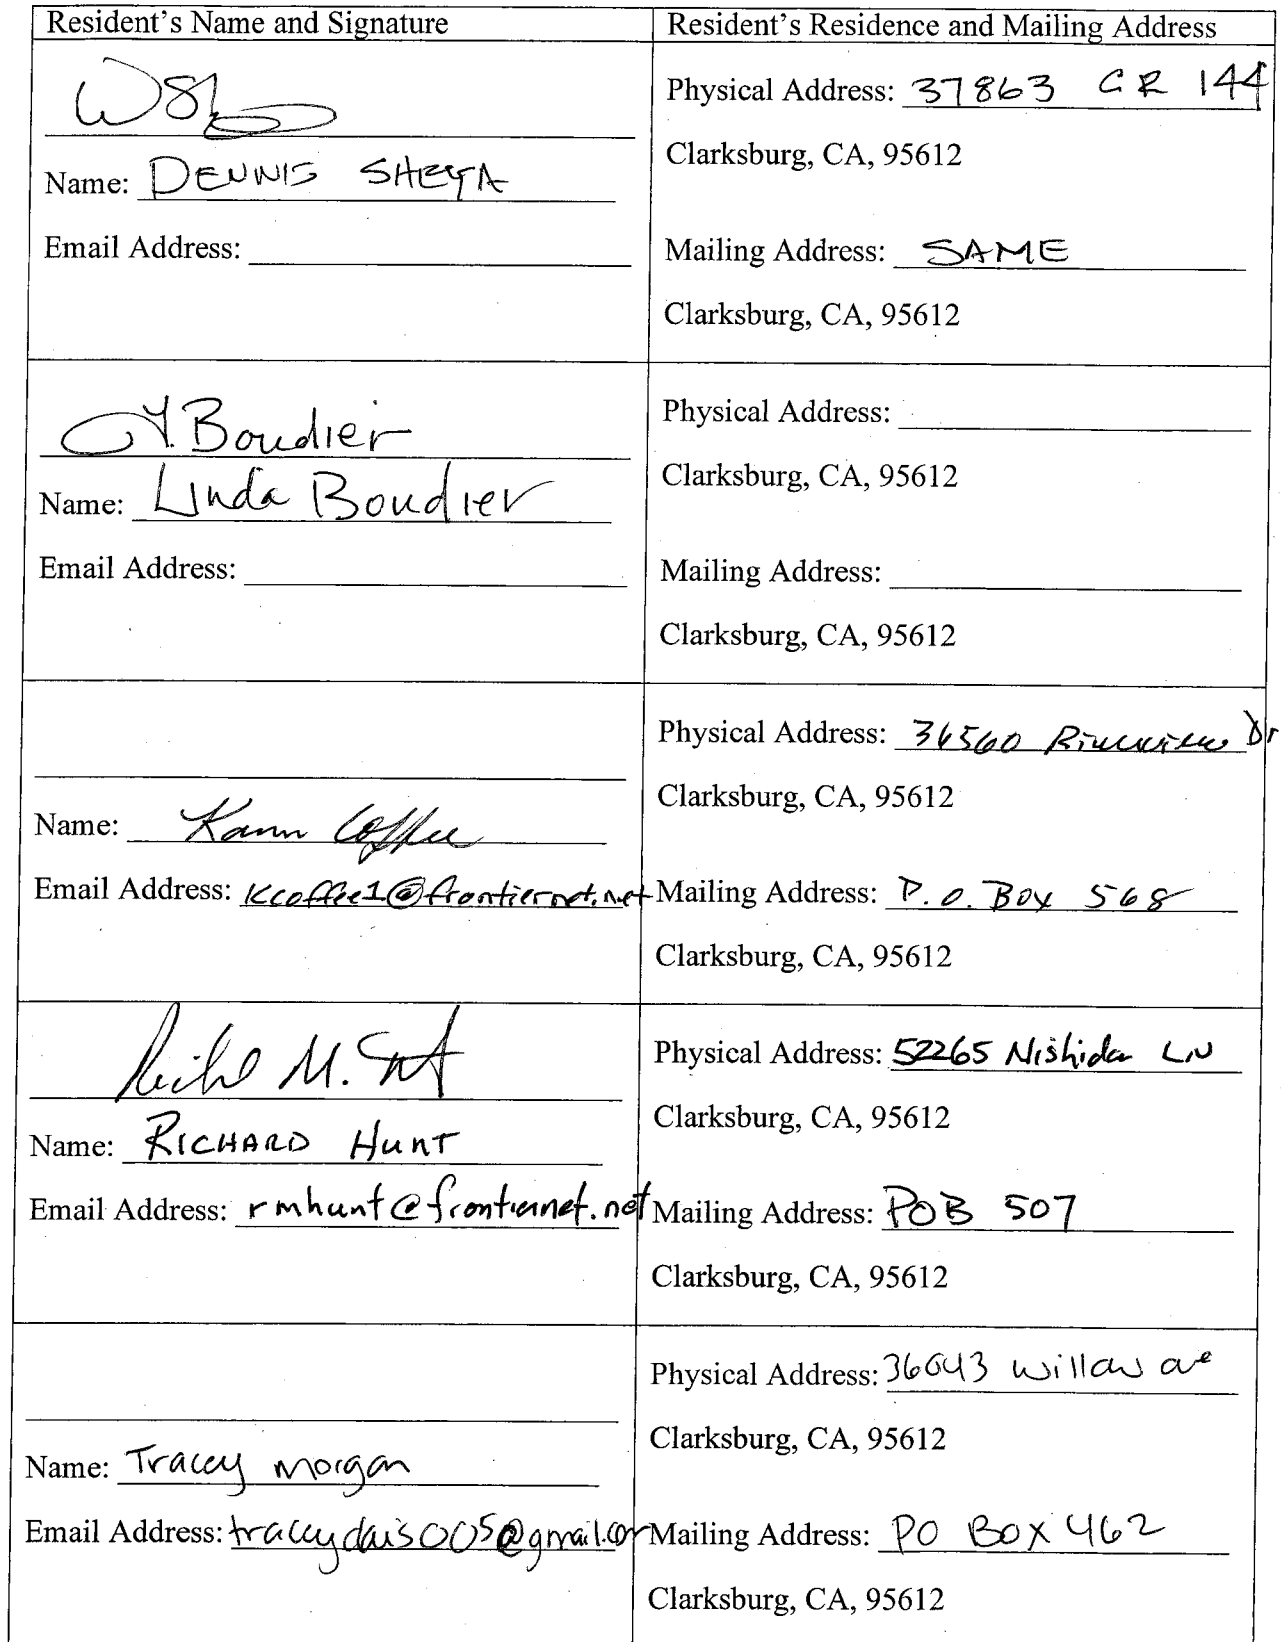 Resident's Name and Signature
Resident's Residence and Mailing Address
Name: DENNIS SHEYA
Email Address:
Physical Address: 37863 CR 144
Clarksburg, CA, 95612
Mailing Address: SAME
Clarksburg, CA, 95612
Boudier
Name: Linda Boudier
Email Address:
Physical Address:
Clarksburg, CA, 95612
Mailing Address:
Clarksburg, CA, 95612
Name: Karin Coffee
Email Address: kcoffee1@frontiernet.net
Physical Address: 36560 Riverview Dr
Clarksburg, CA, 95612
Mailing Address: P.O. Box 568
Clarksburg, CA, 95612
Name: RICHARD HUNT
Email Address: rmhunt@frontiernet.net
Physical Address: 52265 Nishida LN
Clarksburg, CA, 95612
Mailing Address: POB 507
Clarksburg, CA, 95612
Name: Tracey morgan
Email Address:
Physical Address: 36043 willow ave
Clarksburg, CA, 95612
Mailing Address: PO BOX 462
Clarksburg, CA, 95612